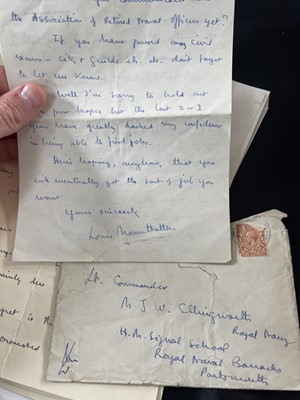 the Association of Retired Naval Officers yet?
If you have passed any Civil
exams - City & Guilds etc. etc. don't forget
to let us know.
Well I'm sorry to hold out
poor hopes but the last 2 or 3
years have greatly dashed my confidence
in being able to find jobs.
Here's hoping, anyhow, that you
will eventually get the sort of job you
want
Yours sincerely
Louis Mountbatten
Lt. Commander
M J W. Ellingworth
Royal Navy
H.M. Signal School
Royal Naval Barracks
Portsmouth
is the